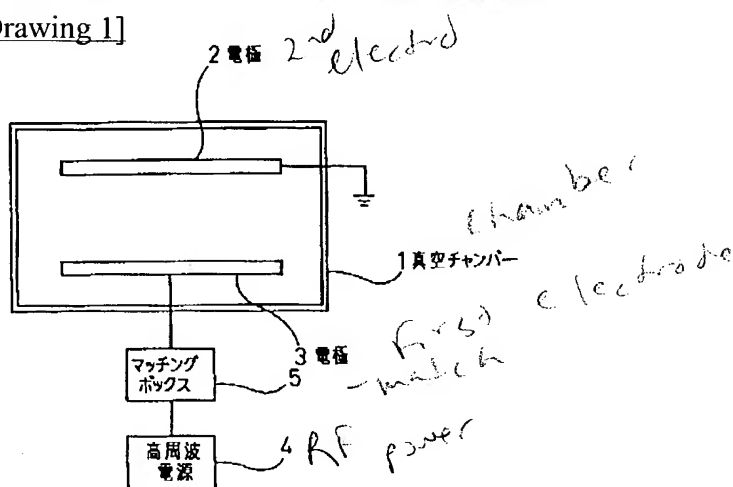 Drawing 1]
2 電極 2nd electrod
chamber
1 真空チャンバー
first electrode
3 電極
マッチング
ボックス
5
-match
高周波
電源
4 RF power